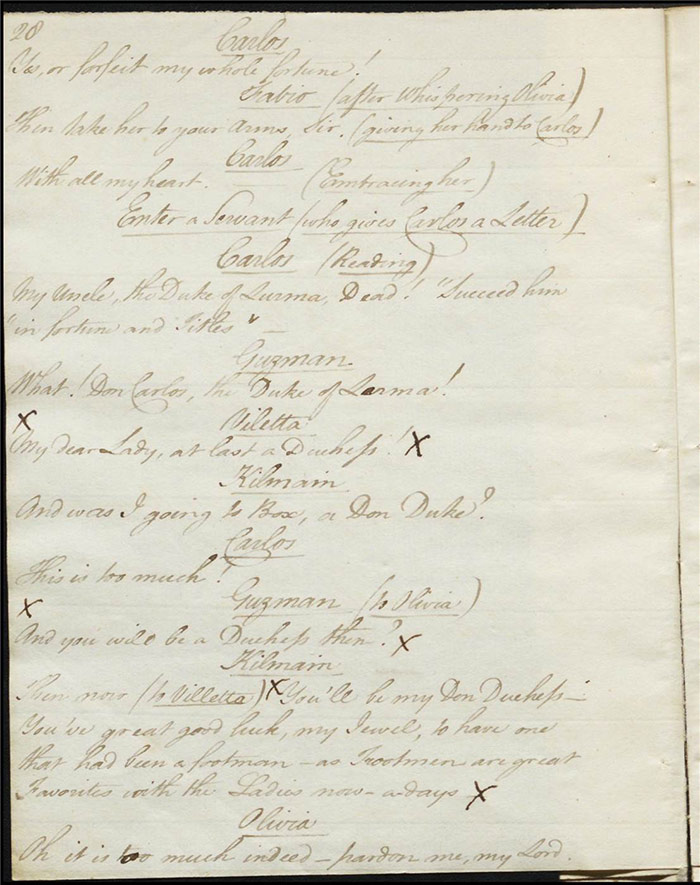 28
Carlos
Yes, or forfeit my whole fortune!
Fabio (after whispering Olivia)
Then take her to your Arms, Sir. (giving her hand to Carlos)
Carlos
With all my heart. (Embracing her)
Enter a Servant (who gives Carlos a Letter)
Carlos (Reading)
My Uncle, the Duke of Lerma, Dead! "Succeed him
"in fortune and Titles" —
Guzman
What! Don Carlos, the Duke of Lerma!
Viletta
X My dear Lady, at last a Duchess! X
Kilmain
And was I going to Box, a Don Duke?
Carlos
This is too much!
Guzman (to Olivia)
X And you will be a Duchess then? X
Kilmain
Then now (to Villetta) X You'll be my Don Duchess —
You've great good luck, my Jewel, to have one
that had been a footman — as Footmen are great
Favorites with the Ladies now-a-days X
Olivia
Oh it is too much indeed — pardon me, my Lord.